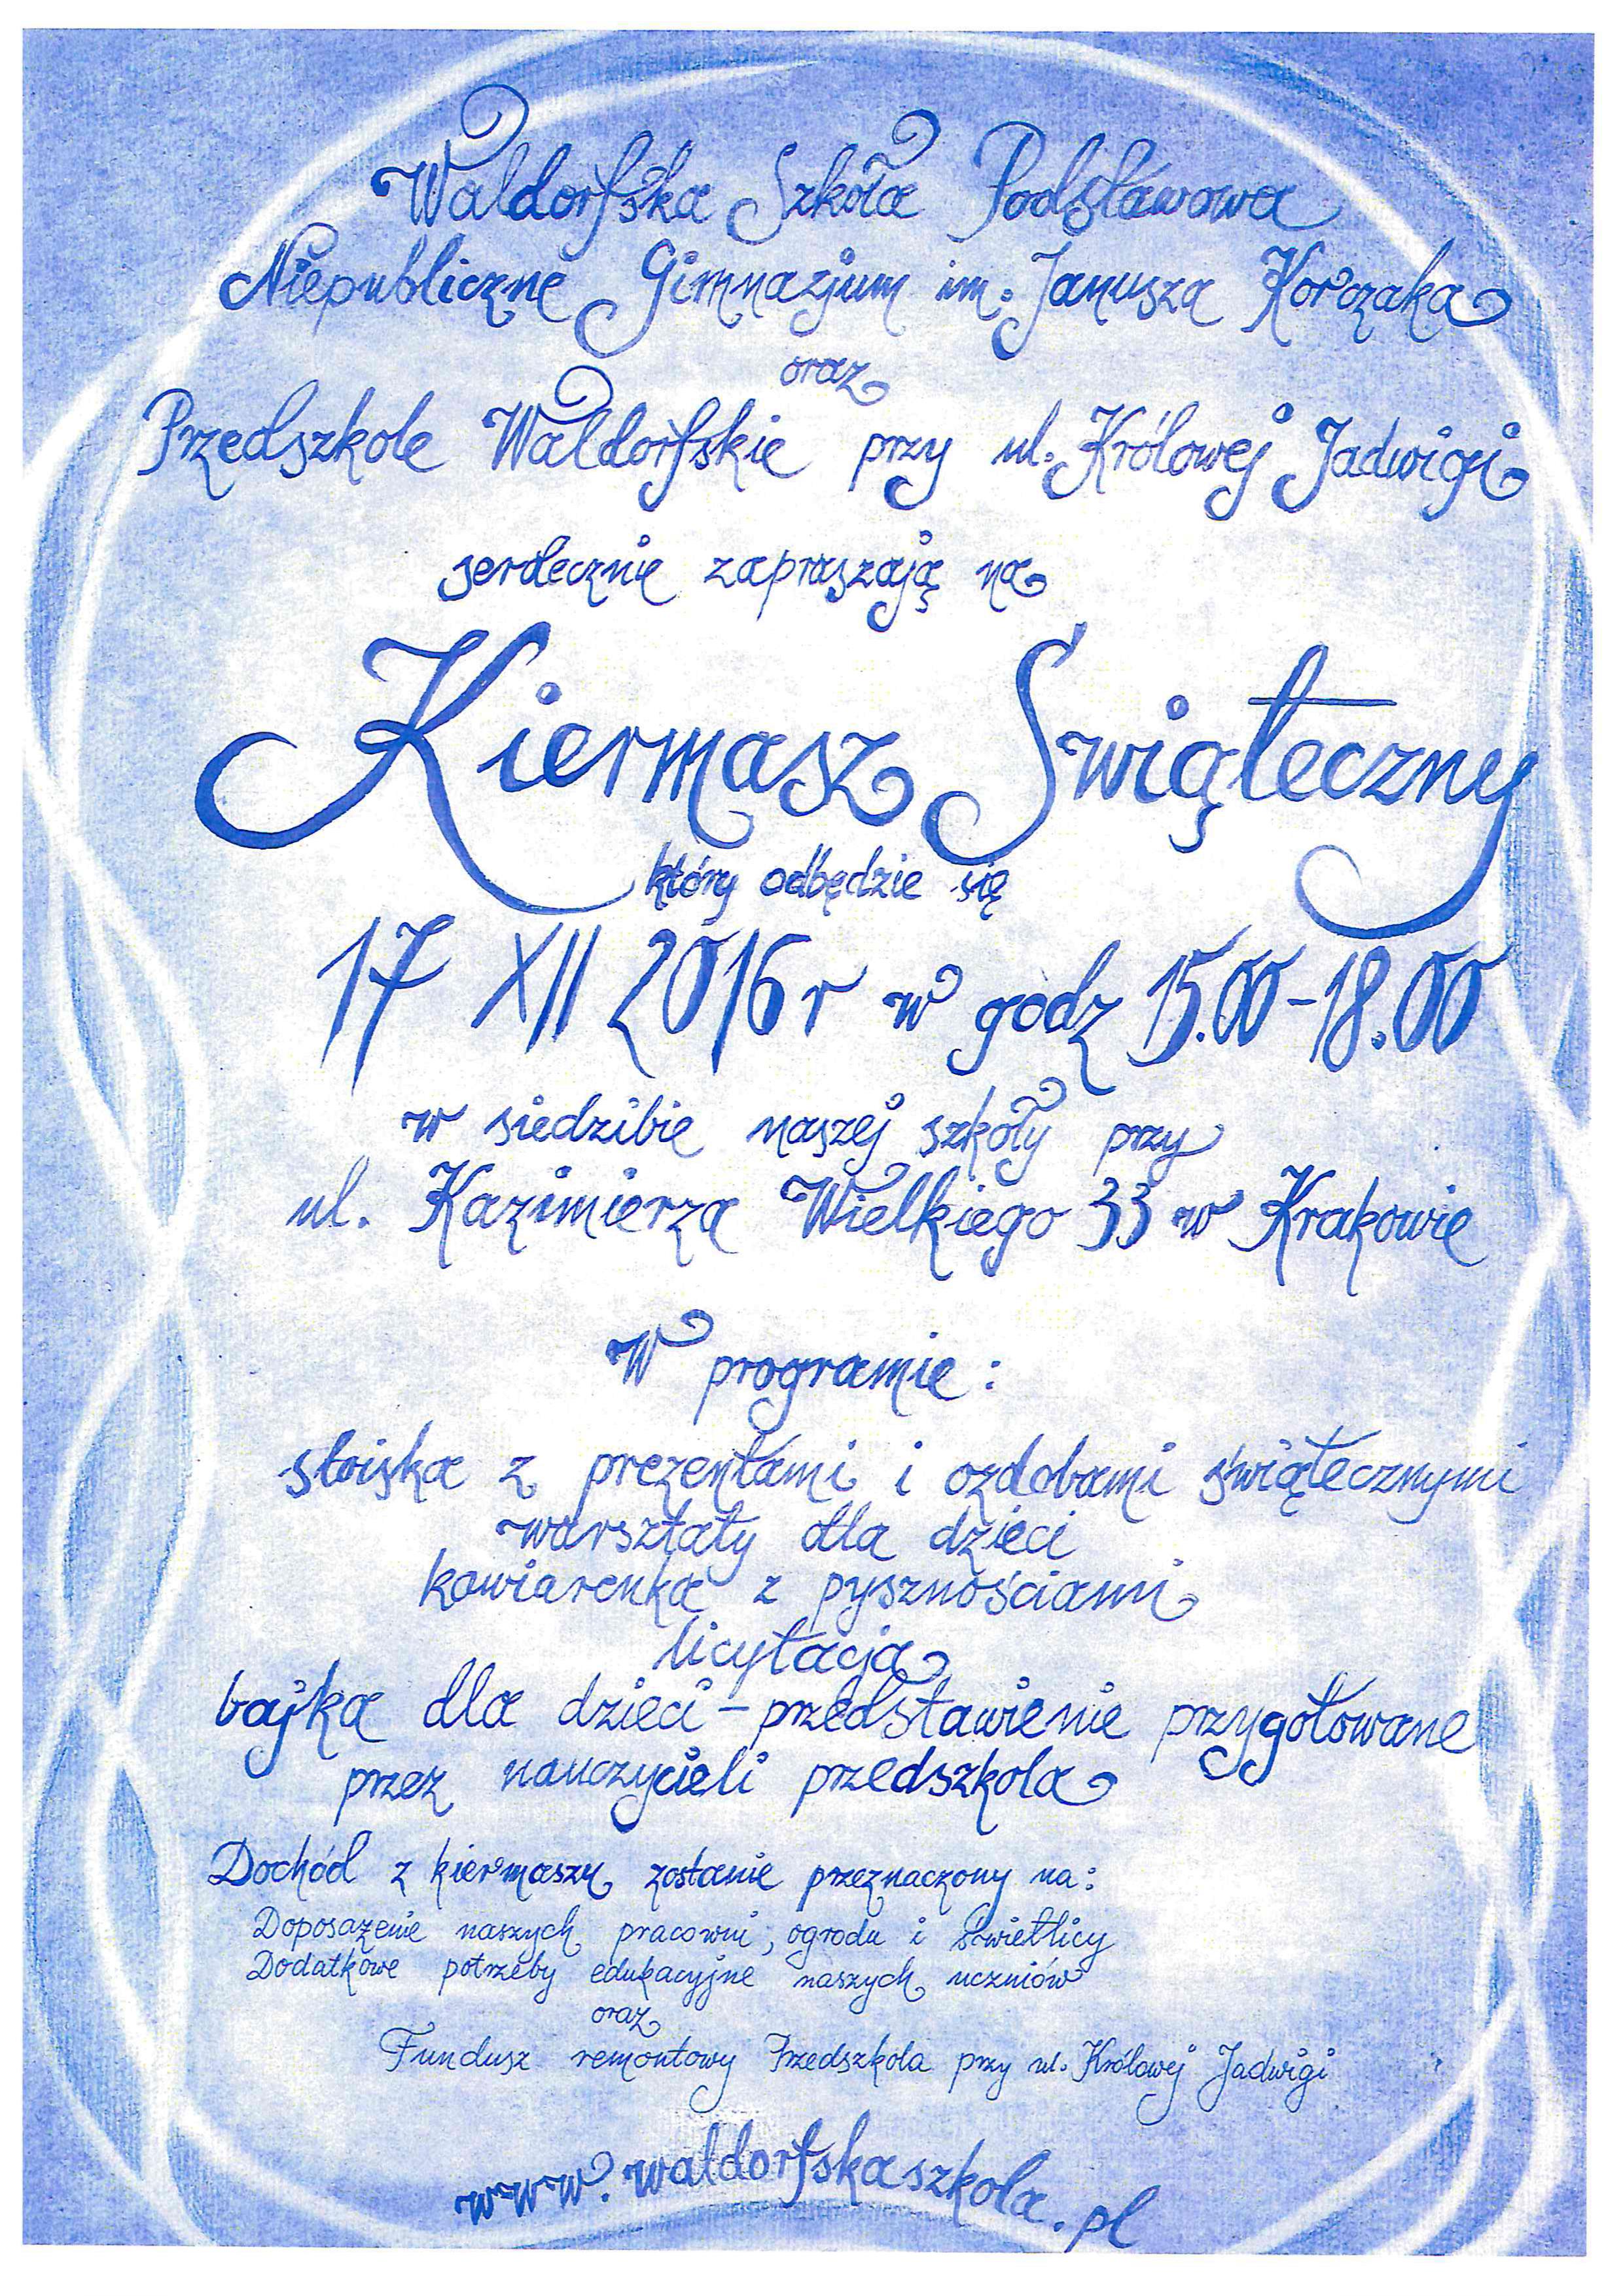 Waldorfska Szkoła Podstawowa
Niepubliczne Gimnazjum im. Janusza Korczaka
oraz
Przedszkole Waldorfskie przy ul. Królowej Jadwigi
serdecznie zapraszają na
Kiermasz Świąteczny
który odbędzie się
17 XII 2016 r w godz 15.00-18.00
w siedzibie naszej szkoły przy
ul. Kazimierza Wielkiego 33 w Krakowie
W programie:
stoiska z prezentami i ozdobami świątecznymi
warsztaty dla dzieci
kawiarenka z pysznościami
licytacja
bajka dla dzieci - przedstawienie przygotowane
przez nauczycieli przedszkola
Dochód z kiermaszu zostanie przeznaczony na:
Doposażenie naszych pracowni, ogrodu i świetlicy
Dodatkowe potrzeby edukacyjne naszych uczniów
oraz
Fundusz remontowy Przedszkola przy ul. Królowej Jadwigi
www.waldorfskaszkola.pl